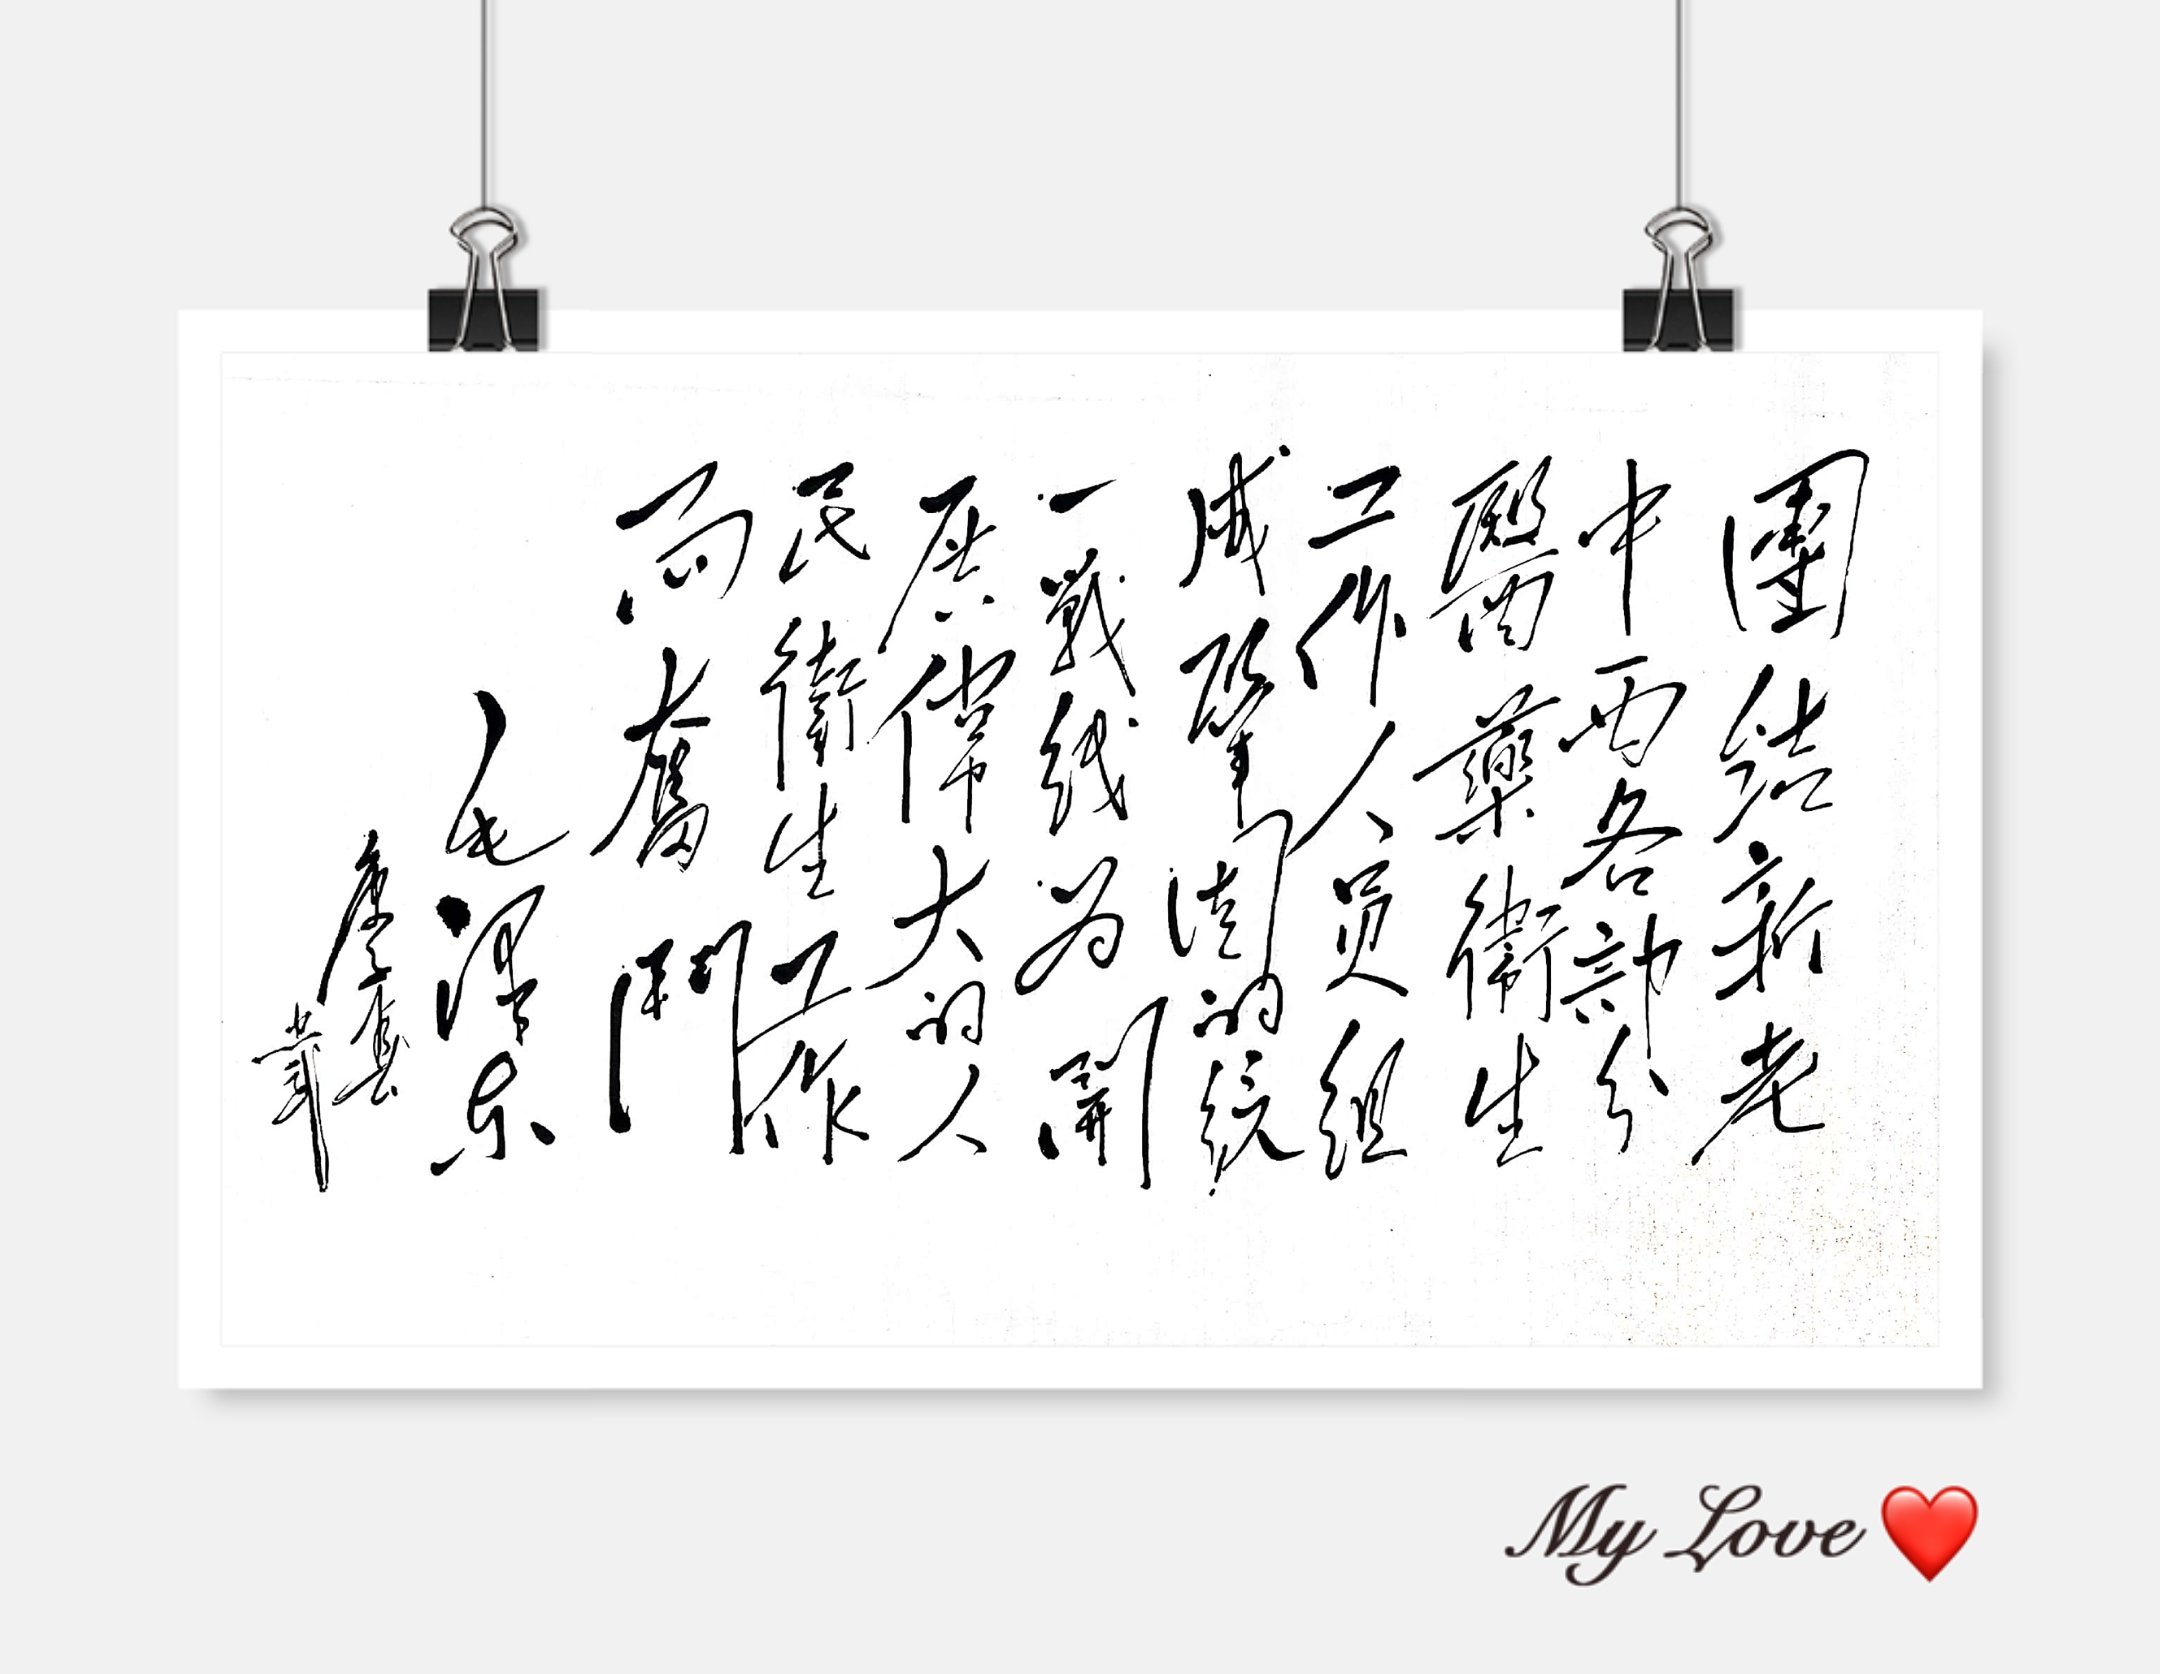 團结新老
中西各部分
醫藥衛生
工作人员组
成鞏固的统
一戰线为開
展偉大的人
民衛生工作
而奮鬥
毛澤东
My Love ❤️